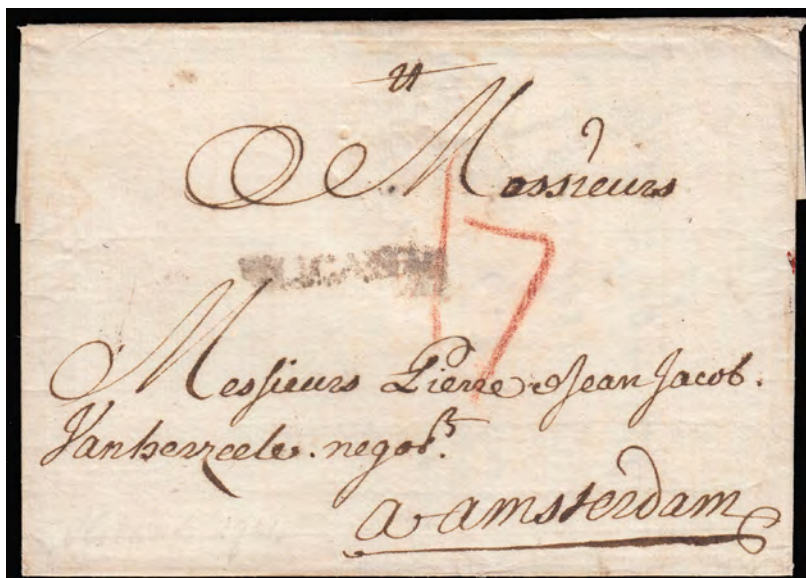 Messieurs
17
Messieurs Pierre & Jean Jacob.
Vanherzeele. negots.
a amsterdam